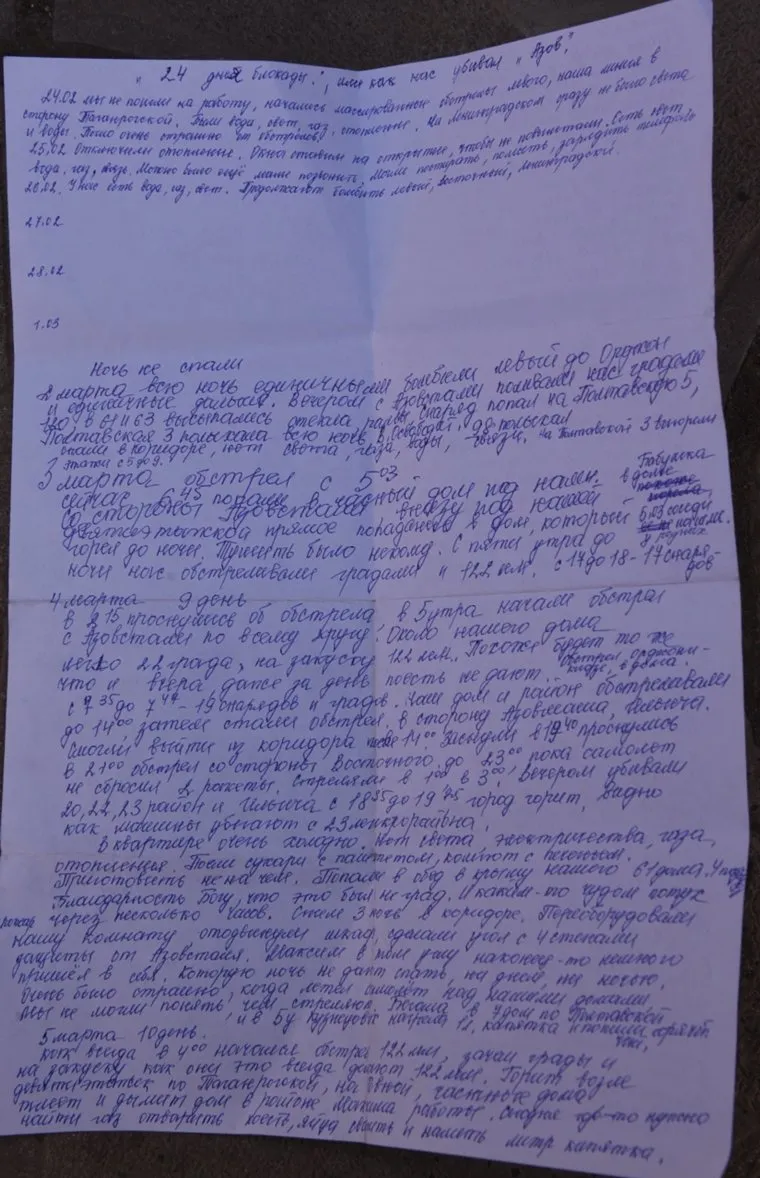 "24 дня блокады", или как нас убивал "Азов".
24.02 мы не пошли на работу, начались массированные обстрелы левого, наша линия в
сторону Таганрогской. Были вода, свет, газ, отопление. На Ленинградском сразу не было света
и воды. Было очень страшно от обстрелов.
25.02 Отключили отопление. Окна ставим на открытие, чтобы не повылетали. Есть свет
вода, газ, связь. Можно было ещё маме позвонить, могли постирать, поесть, зарядить телефоны
26.02. У нас есть вода, газ, свет. Продолжают бомбить левый, восточный, Ленинградский.
27.02
28.02
1.03
Ночь не спали
2 марта всю ночь единичными бомбили левый до Орджон
и единичные дальше. Вечером с Азовстали поливали нас градами
120, в 61 и 63 высыпались стекла, рамы, снаряд попал на Полтавскую 5,
Полтавская 3 полыхала всю ночь, полыхал
спали в коридоре, нет света, газа, воды, связи. На Полтавской 3 выгорели
этажи с 5 до 9.
3 марта обстрел с 5 03
сейчас 6 45 попали в частный дом под нами.
со стороны Азовстали внизу под нашей
девятиэтажкой прямое попадание в дом, который
горел до ночи. Тушить было некому. С пяти утра до
ночи нас обстреливали градами и 122 мм. с 17 до 18 - 17 снаря-
дов
4 марта 9 день
в 2 15 проснулись об обстрела, в 5 утра начали обстрел
с Азовстали по всему кругу. Около нашего дома
легло 22 града, на закуску 122 мм. Похоже будет то же
что и вчера, даже за день поесть не дают. Обстрел Орджони-
кидзе, в дома.
с 7 35 до 7 47 - 19 снарядов и градов. Наш дом и район обстреливали
до 14 00 затем стали обстрел. в сторону Азовмаша, Ильича.
Смогли выйти из коридора 14 00. Заснули в 19 40 проснулись
в 21 00 обстрел со стороны Восточного до 23 00, пока самолет
не сбросил 2 ракеты. Стреляли в 1 00 в 3 00. Вечером убивали
20, 22, 23 район и Ильича с 18 35 до 19 45 город горит. Видно
как машины убегают с 23 микрорайона.
В квартире очень холодно. Нет света электричества, газа,
отопления. Поели сухари с паштетом, компот с печеньем.
Приготовить не на чем. Попали в обед в крышу нашего 61 дома.
Благодарность Богу, что это был не град. И каким-то чудом потух
пожар через несколько часов. Спим 3 ночь в коридоре. Переоборудовали
нашу комнату отодвинули шкаф, сделали угол с 4 стенами
защиты от Азовсталя. Максим в том углу наконец-то немного
пришёл в себя. Которую ночь не дают спать, ни днём, ни ночью.
Очень было страшно, когда летел самолёт над нашими домами.
Мы не могли понять, чем стреляют. Бегала в 7 дом по Полтавской
и в 5у Кузнецовы нагрела 1л. кипятка и попили горячий
чай,
5 марта 10 день.
как всегда в 4 00 начался обстрел 122 мм, зачем грады и
на закуску как они это всегда делают 122 мм. Горит возле
девятиэтажек по Таганрогской, частные дома
тлеет и дымят дом в районе Максима работы. Сегодня где-то нужно
найти газ отварить кость, яйца сварить и налить литр кипятка.